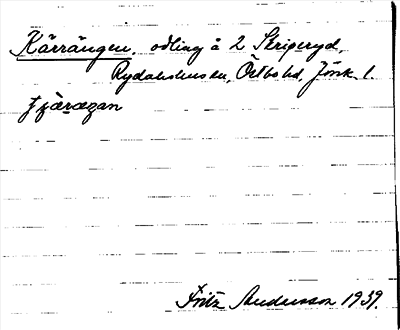 Kärrängen, odling å 2 Skriperyd,
Rydaholms sn, Östbo hd, Jönk. l.
Fritz Andersson 1939.